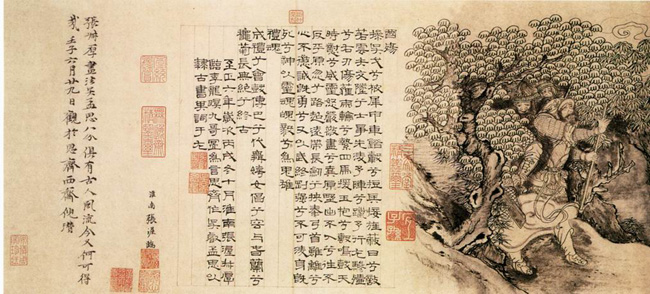 國殤
操吳戈兮被犀甲車錯轂兮短兵接旌蔽日兮敵
若雲矢交墜兮士爭先凌余陣兮躐余行左驂殪
兮右刃傷霾兩輪兮縶四馬援玉枹兮擊鳴鼓天
時懟兮威靈怒嚴殺盡兮棄原壄出不入兮往不
反平原忽兮路超遠帶長劍兮挾秦弓首雖離兮
心不懲誠既勇兮又以武終剛強兮不可凌身既
死兮神以靈魂魄毅兮為鬼雄
禮魂
成禮兮會鼓傳芭兮代舞姱女倡兮容與春蘭兮
秋菊長無絕兮終古
至正六年歲次丙戌冬十月淮南張渥叔厚
臨李龍眠九歌圖為言思齊作吳叡孟思以
隸古書其詞于左
淮南張渥臨
張叔厚畫法吳孟思八分俱有古人風流今又何可得
哉壬子六月廿九日觀於思齊西齋倪瓚